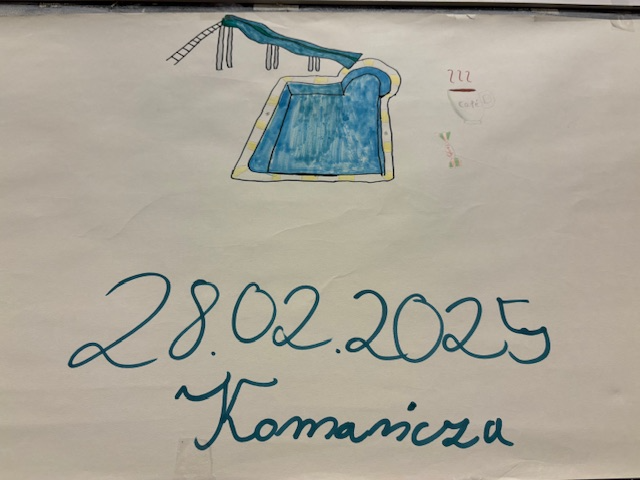 28.02.2025
Komańcza